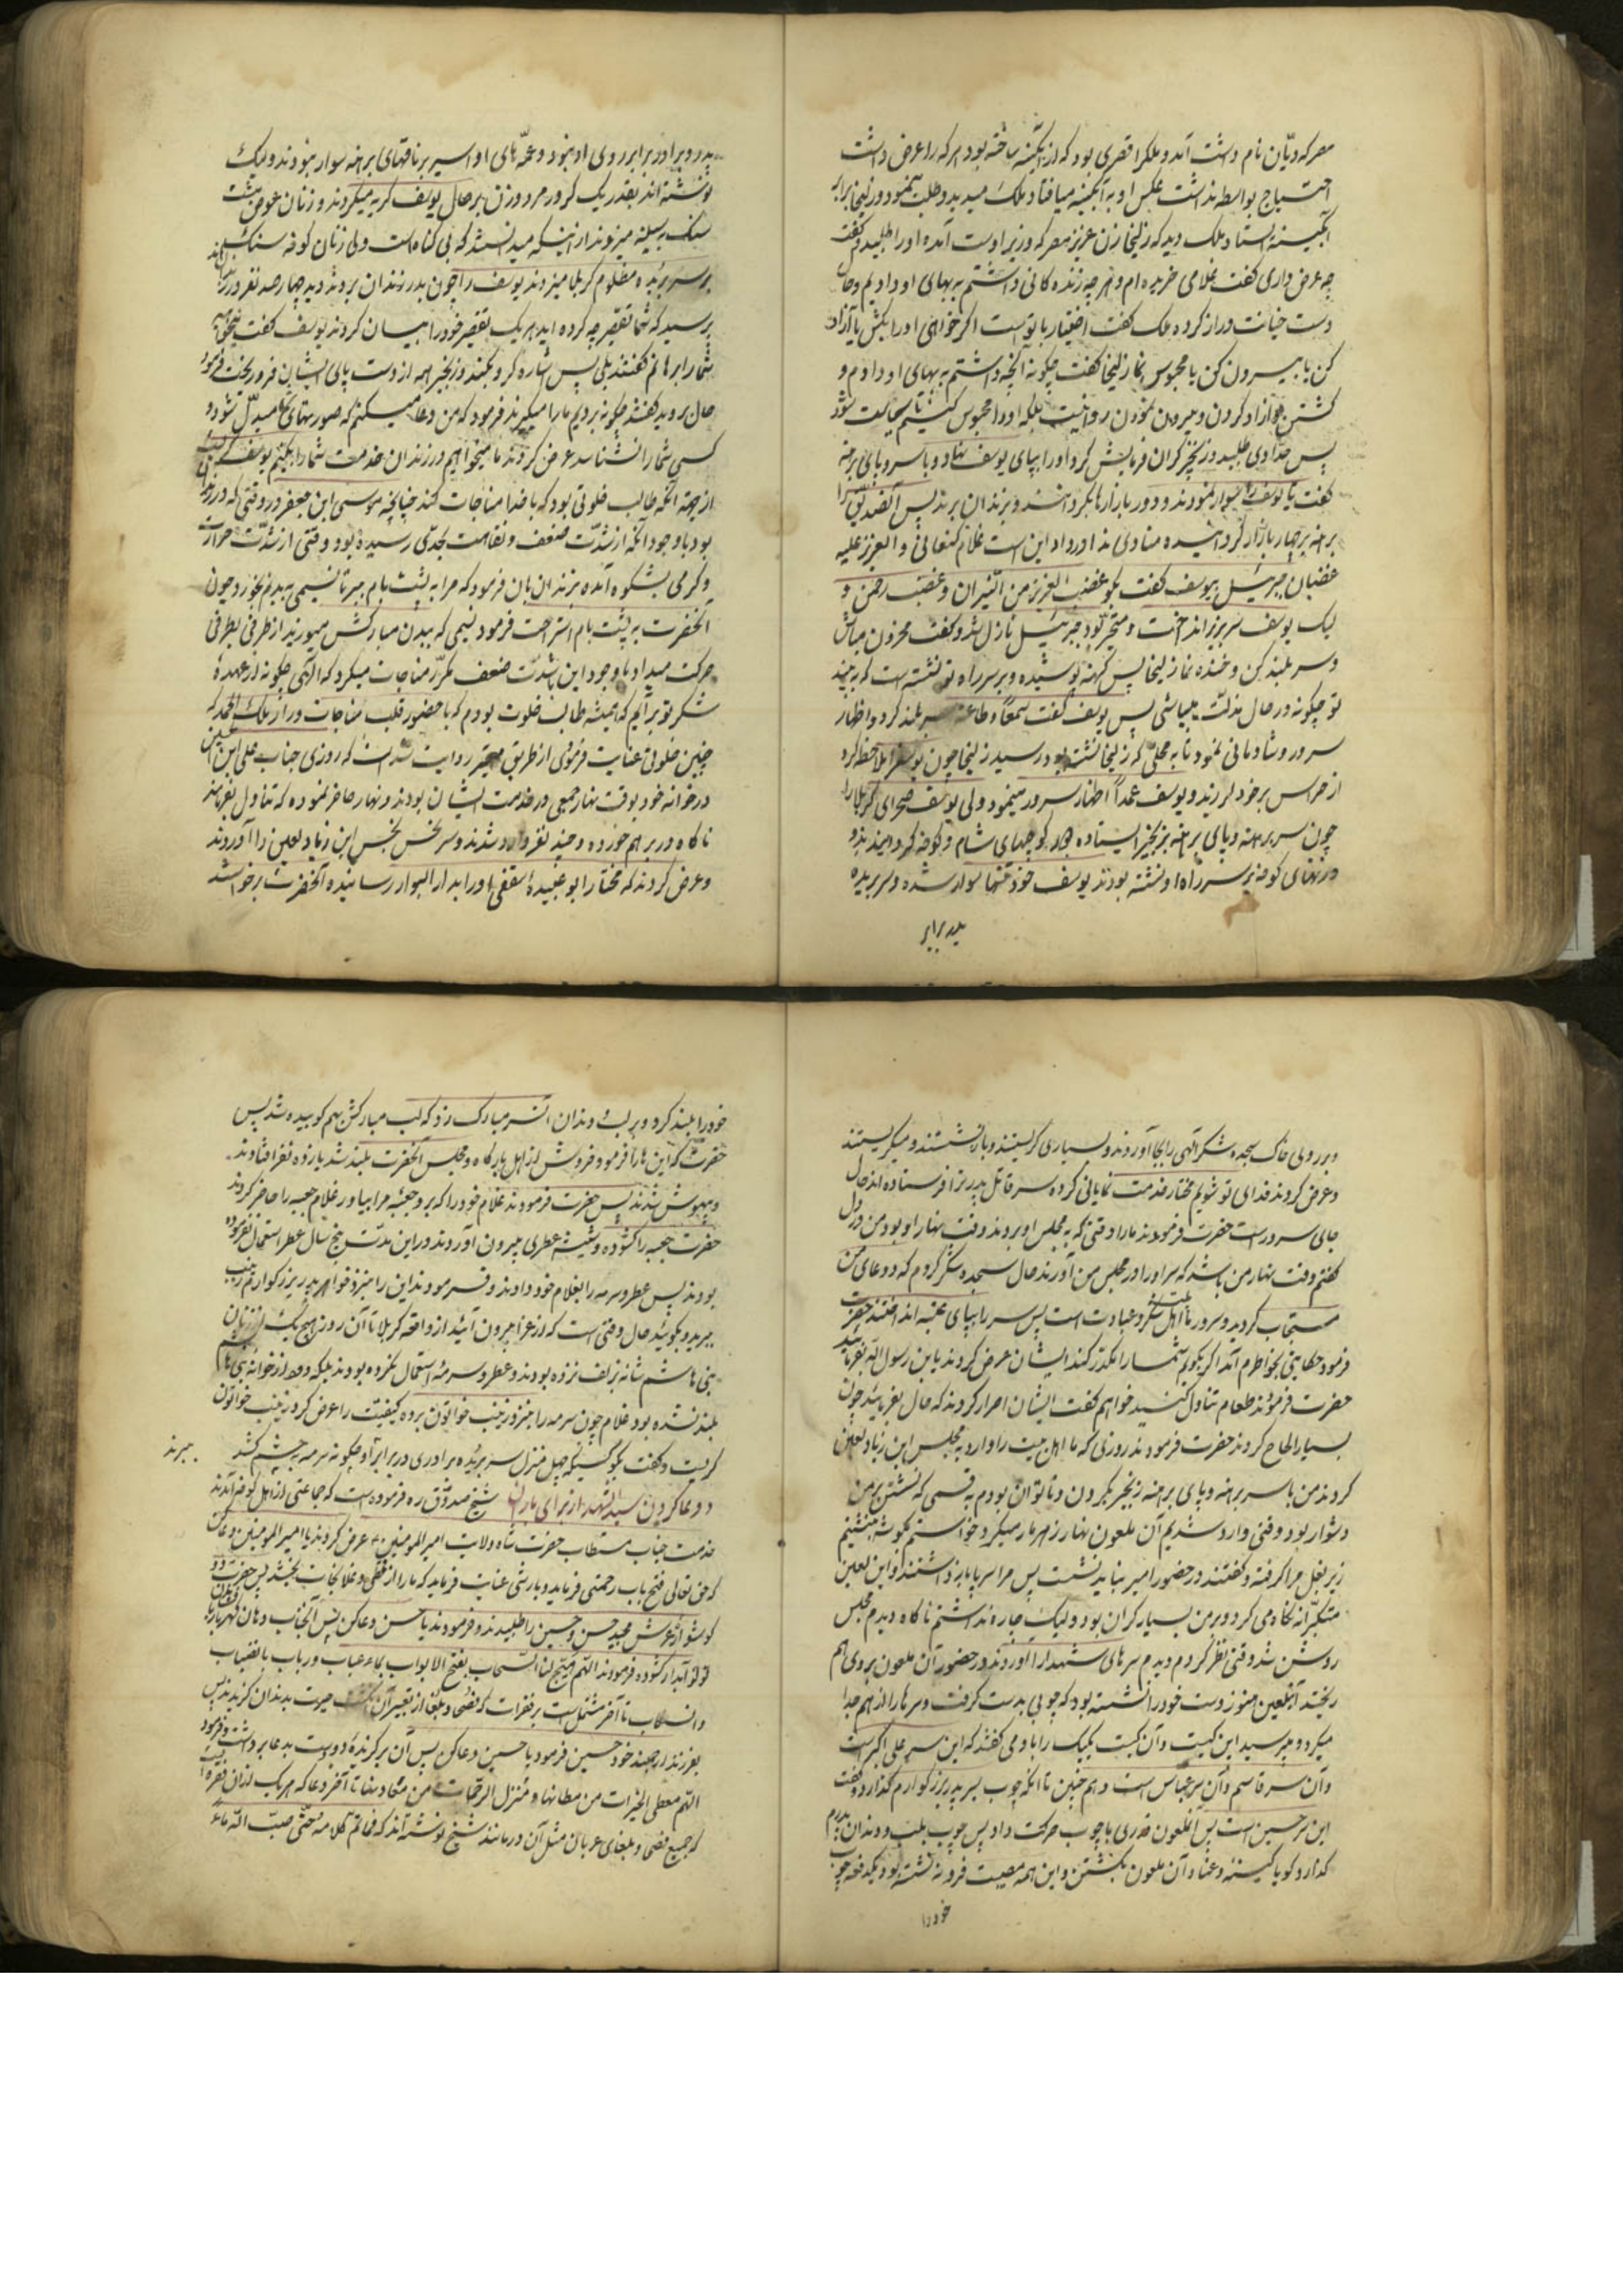 مصر که دیّان نام داشت آمد و ملکرا قصری بود که از آبگینه ساخته بود هر که را عرض داشت
احتیاج بواسطه نداشت عکس او به آبگینه میافتاد ملک میدید و طلب مینمود و زلیخا برابر
آبگینه ایستاد ملک دید که زلیخا زن عزیز مصر که وزیر اوست آمده او را طلبید و گفت
چه عرض داری گفت غلامی خریده ام و هر چه زنده کانی داشتم به بهای او دادیم و حال
دست خیانت دراز کرده ملک گفت اختیار با تو است اگر خواهی او را بکش یا آزاد
کن یا بیرون کن یا محبوس نما زلیخا گفت چگونه آنچه داشتم به بهای او دادم و
کشتن و آزاد کردن و بیرون نمودن روا نیست بلکه او را محبوس کنیم تا خجالت شود
پس حدّادی طلبید و زنجیر گران فرمایش کرد او را بپای یوسف نهاد و با سر و پای برهنه
گفت تا یوسف را سوار نمودند و دور بازارها بگردانند و بزندان برند پس آنصدّیق را
برهنه بر چهار بازار گردانیده منادی ندا در داد این است غلام کنعانی و العزیز علیه
غضبان جبرئیل بیوسف گفت بگو غضب العزیز من النّیران و غضب رحمن و
لیک یوسف سر بزیر انداخت و متحیّر بود جبرئیل نازل شد و گفت محزون مباش
و سر بلند کن و خنده نما زلیخا پس کهنه پوشیده و بر سر راه تو نشسته است که به بیند
تو چگونه در حال مذلّت میباشی پس یوسف گفت سمعاً و طاعة سر بلند کرد و اظهار
سرور و شادمانی نمود تا به محلّی که زلیخا نشسته بود رسید زلیخا چون یوسفرا ملاحظه کرد
از هراس بر خود لرزید و یوسف عمداً اظهار سرور مینمود ولی یوسف صحرای کربلا را
چون سر برهنه و پای برهنه بزنجیر ایستاده بود کوچهای شام و کوفه گردانیدند و
و زنهای کوفه بر سر راه او نشسته بودند یوسف خود تنها سوار شده و سر بریده
پدر برابر
پدر و برادر برابر روی او نبود و عمّه های او اسیر بر ناقهای برهنه سوار نبودند ولیک
نوشته اند بقدر یک کرور مرد و زن بر حال یوسف گریه میکردند و زنان عوض
سنگ به سینه میزدند از اینکه میدانستند که بی گناه است ولی زنان کوفه سنگ
بر سر بریده مظلوم کربلا میزدند یوسف را چون بدر زندان بردند دید چهار صد نفر در زندان
پرسید که شما تقصیر چه کرده اید هر یک تقصیر خود را بیان کردند یوسف گفت میخواهید
شما را برهانم گفتند بلی پس اشاره کرد بکند و زنجیر همه از دست پای ایشان فرو ریخت فرمود
حال بروید گفتند چگونه برویم ما را میگیرند فرمود که من دعا میکنم که صورتهای شما مبدّل شود و
کسی شما را نشناسد عرض کردند ما میخواهیم در زندان خدمت شما را بکنیم یوسف
از جهة آنکه طالب خلوتی بود که با خدا مناجات کند چنانچه موسی ابن جعفر در وقتی که در زندان
بود با وجود آنکه از شدّت ضعف و نقاهت بحدّی رسیده بود و وقتی از شدّت حرارت
و گرمی بشکوه آمده بزندان بان فرمود که مرا به پشت بام ببر تا نسیمی به بدنم بخورد چون
آنحضرت به پشت بام استراحت فرمود نسیمی که ببدن مبارکش میوزید از طرفی بطرفی
حرکت میداد با وجود این شدّت ضعف مکرّر مناجات میکرد که الهی چگونه از عهدهٔ
شکر تو بر آیم که همیشه طالب خلوت بودم که با حضور قلب مناجات و راز ملک الحمد که
چنین خلوتی عنایت فرمودی از طریق معتبر روایت شده است که روزی جناب علی ابن الحسین
در خوانه خود بوقت نهار جمعی در خدمت ایشان بودند و نهار حاضر نموده که تناول بفرمایند
ناگاه در بر هم خورده و چند نفر وارد شدند و سر نحس نجس ابن زیاد لعین را آوردند
و عرض کردند که مختار ابو عبیدهٔ ثقفی او را به دار البوار رسانیده آنحضرت برخواستند
و بر روی خاک سجده شکر الهی را بجا آوردند و بسیاری گریستند و باز نشستند و میگریستند
و عرض کردند فدای تو شویم مختار خدمت نمایانی کرده سر قاتل پدر ترا فرستاده اند حال
جای سرور است حضرت فرمودند ما را وقتی که به مجلس او بردند وقت نهار او بود من در دل
گفتم وقت نهار من باشد که سر او را در مجلس من آورند حال سجده شکر کردم که دعای من
مستجاب گردید و سرور ما اهل بیت شکر و عبادت است پس سر را بپای عتبه انداختند حضرت
فرمود حکایتی بخواطرم آمد اگر بگویم شما را مکدّر کند ایشان عرض کردند یا بن رسول الله بفرمائید
حضرت فرمودند طعام تناول کنید خواهم گفت ایشان اصرار کردند که حال بفرمائید چون
بسیار الحاح کردند حضرت فرمودند روزی که ما اهل بیت را وارد به مجلس ابن زیاد لعین
کردند من با سر برهنه و پای برهنه زنجیر بگردن و ناتوان بودم به قسمی که نشستن بر من
دشوار بود وقتی وارد شدیم آن ملعون نهار زهر مار میکرد خواستم بگوشه بنشینم
زیر بغل مرا گرفته و گفتند در حضور امیر نباید نشست پس مرا سر پا باز داشتند و این لعین
متکبّرانه نگاه می کرد و بر من بسیار گران بود ولیک چاره نداشتم ناگاه دیدم مجلس
روشن شد وقتی نظر کردم دیدم سرهای شهدا را آوردند در حضور آن ملعون بروی هم
ریختند آنلعین هنوز دست خود را نشسته بود که چوبی بدست گرفت و سرها را از هم جدا
میکرد و میپرسید این کیست و آن کیست یکیک را باو می گفتند که این سر علی اکبر است
و آن سر قاسم و آن سر عباس است و هم چنین تا آنکه چوب بسر پدر بزرگوارم گذارد و گفت
این سر حسین است پس آنملعون قدری با چوب حرکت داد پس چوب بلب و دندان پدرم
گذارد گویا کینه و عناد آن ملعون بکشتن و این همه مصیبت فرو نه نشسته بود یکدفعه چوب
خود را
خود را بلند کرد و بر لب و دندان آنسر مبارک زد که لب مبارکش بهم کوبیده شد پس
حضرت که این ها را فرمود خروش از اهل بارگاه و مجلس آنحضرت بلند شد یازده نفر افتادند
و بیهوش شدند پس حضرت فرمودند غلام خود را که برو جعبهٔ مرا بیاور غلام جعبه را حاضر کردند
حضرت جعبه را گشوده و شیشه عطری بیرون آوردند و در این مدّت پنج سال عطر استعمال نفرموده
بودند پس عطر و سرمه را بغلام خود دادند و فرمودند این را بنزد خواهر پدر بزرگوارم زینب
ببرید و بگوئید حال وقتی است که از عزا بیرون آئید از واقعه کربلا تا آن روز هیچ یک از زنان
بنی هاشم شانه بزلف نزده بودند و عطر و سرمه استعمال نکرده بودند بلکه دود از خوانه بنی هاشم
بلند نشده بود غلام چون سرمه را بنزد زینب خواتون برده کیفیّت را عرض کرد زینب خواتون
گریست و گفت بگو کسیکه چهل منزل سر بریده برادری در برابر او چگونه سرمه به چشم کشد
ببرند
دعا کردن سید الشهدا از برای باران شیخ صدوّق ره فرموده است که جماعتی از اهل کوفه آمدند
خدمت جناب مستطاب حضرت شاه ولایت امیر المومنین عرض کردند یا امیر المومنین دعا کن
که حق تعالی فتح باب رحمتی فرماید و بارشی عنایت فرماید که ما را از قحطی و غلا نجات بخشد پس حضرت دو
گوشوار عرش مجید حسن و حسین را طلبیدند و فرمودند یا حسن دعا کن پس آنجناب دهان گهر بار
لولو آبدار گشوده فرمودند اللهم هیّج لنا السّحاب بفتح الابواب بماء عباب و رباب بانصباب
و انسکاب تا آخر مشتمل است بر فقرات که فصحا و بلغا از تعبیر آن انگشت حیرت بدندان گزیدند پس
بفرزند ارجمند خود حسین فرمود یا حسین دعا کن پس آن بر گزیدهٔ دوست بدعا برداشت و فرمود
اللهم معطی الخیرات من مظانها و منزل الرحمات من معادنها تا آخر دعا که هر یک از ان فقرها
که جمیع فصحا و بلغای عربان مثل آن درمانند شیخ نوشته آند که فما تم کلامه حتّی صبّ الله ماء